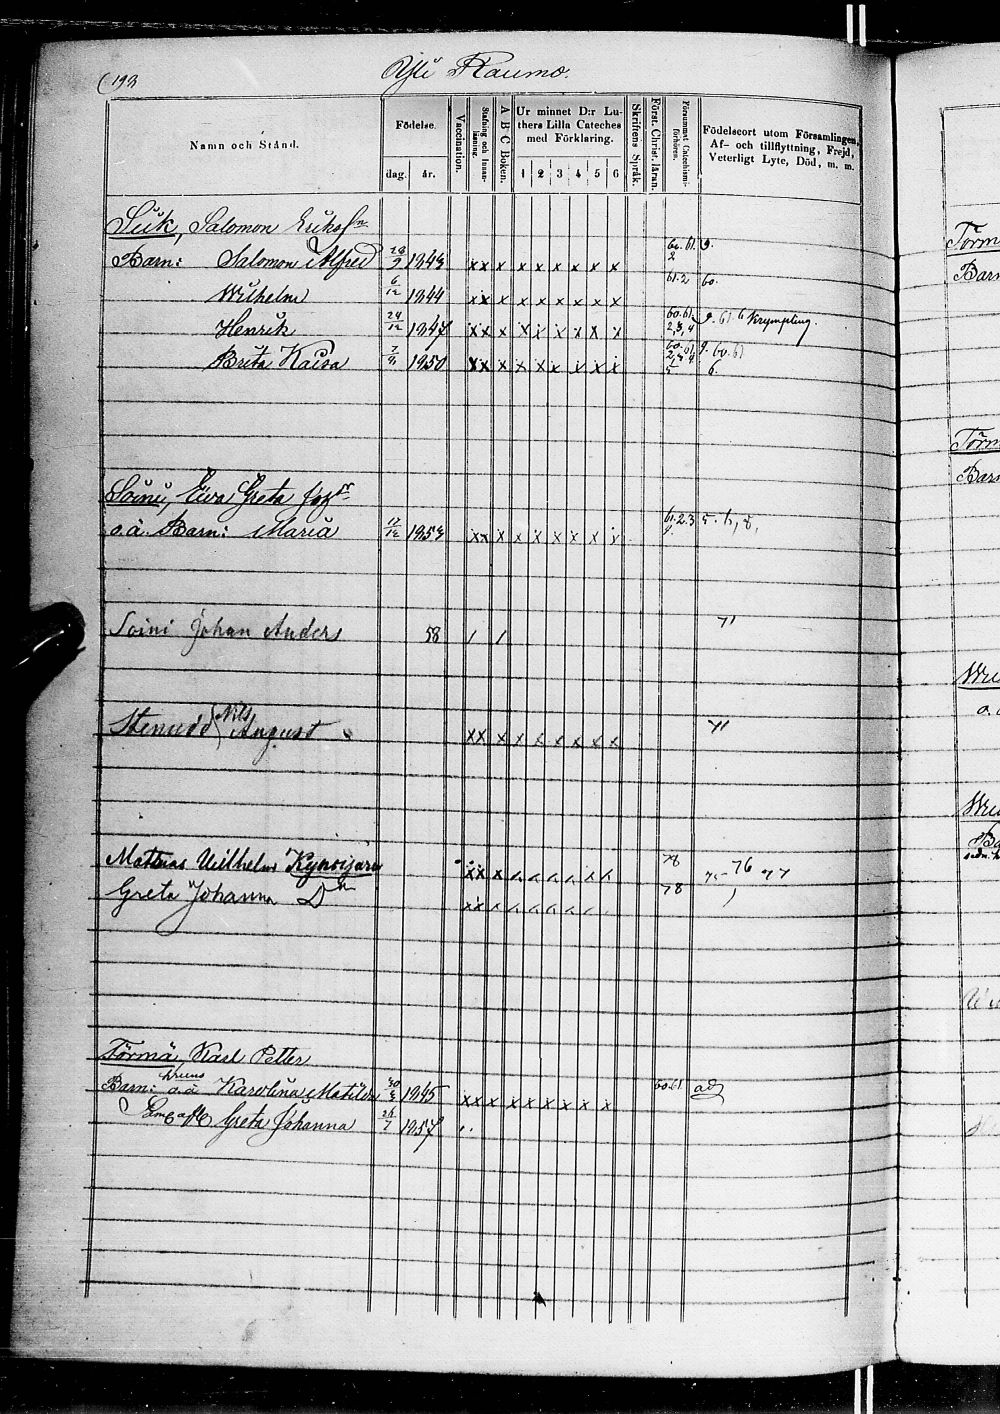 193
Yli Raumo.
Namn och Stånd.
Födelse.
dag.
år.
Vaccination.
Stafning och Innan-läsning.
A B C Boken.
Ur minnet D:r Lu-
thers Lilla Cateches
med Förklaring.
1 2 3 4 5 6
Skriftens Språk.
Först. Christ. läran.
Försummat Catechismi-förhören.
Födelseort utom Församlingen,
Af- och tillflyttning, Frejd,
Veterligt Lyte, Död, m. m.
Siik, Salomon Eriksson
Barn: Salomon Alfred 28/9 1843 x x x x x x x x x 60.61. 2 9.
Wilhelm 6/12 1844 x x x x x x x x x 61.2 60.
Henrik 24/12 1847 x x x x x x x x x 60.61. 2,3,4 9.61.6 Krympling.
Brita Kaisa 7/9 1850 x x x x x x x x x 60.61 2,3,4 5 9.60.61 6.
Soini, Eva Greta
o.ä. Barn: Maria 12/12 1853 x x x x x x x x x 61.2.3 5.6,8,
Soini Johan Anders 58 / / 71
Nils
August x x x x x x x x x 71
Mattias Wilhelm 78 75- 76 77
Greta Johanna Dn 78
Törmä, Karl Petter
Barn: o.ä Karolina Matilda 30/3 1845 x x x x x x x x x 60.61
Greta Johanna 26/7 1857
Törm
Barn
Törm
Barn
o.